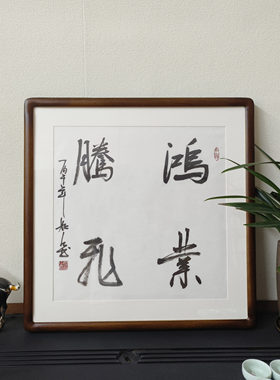 鴻業
騰飛
丙午年